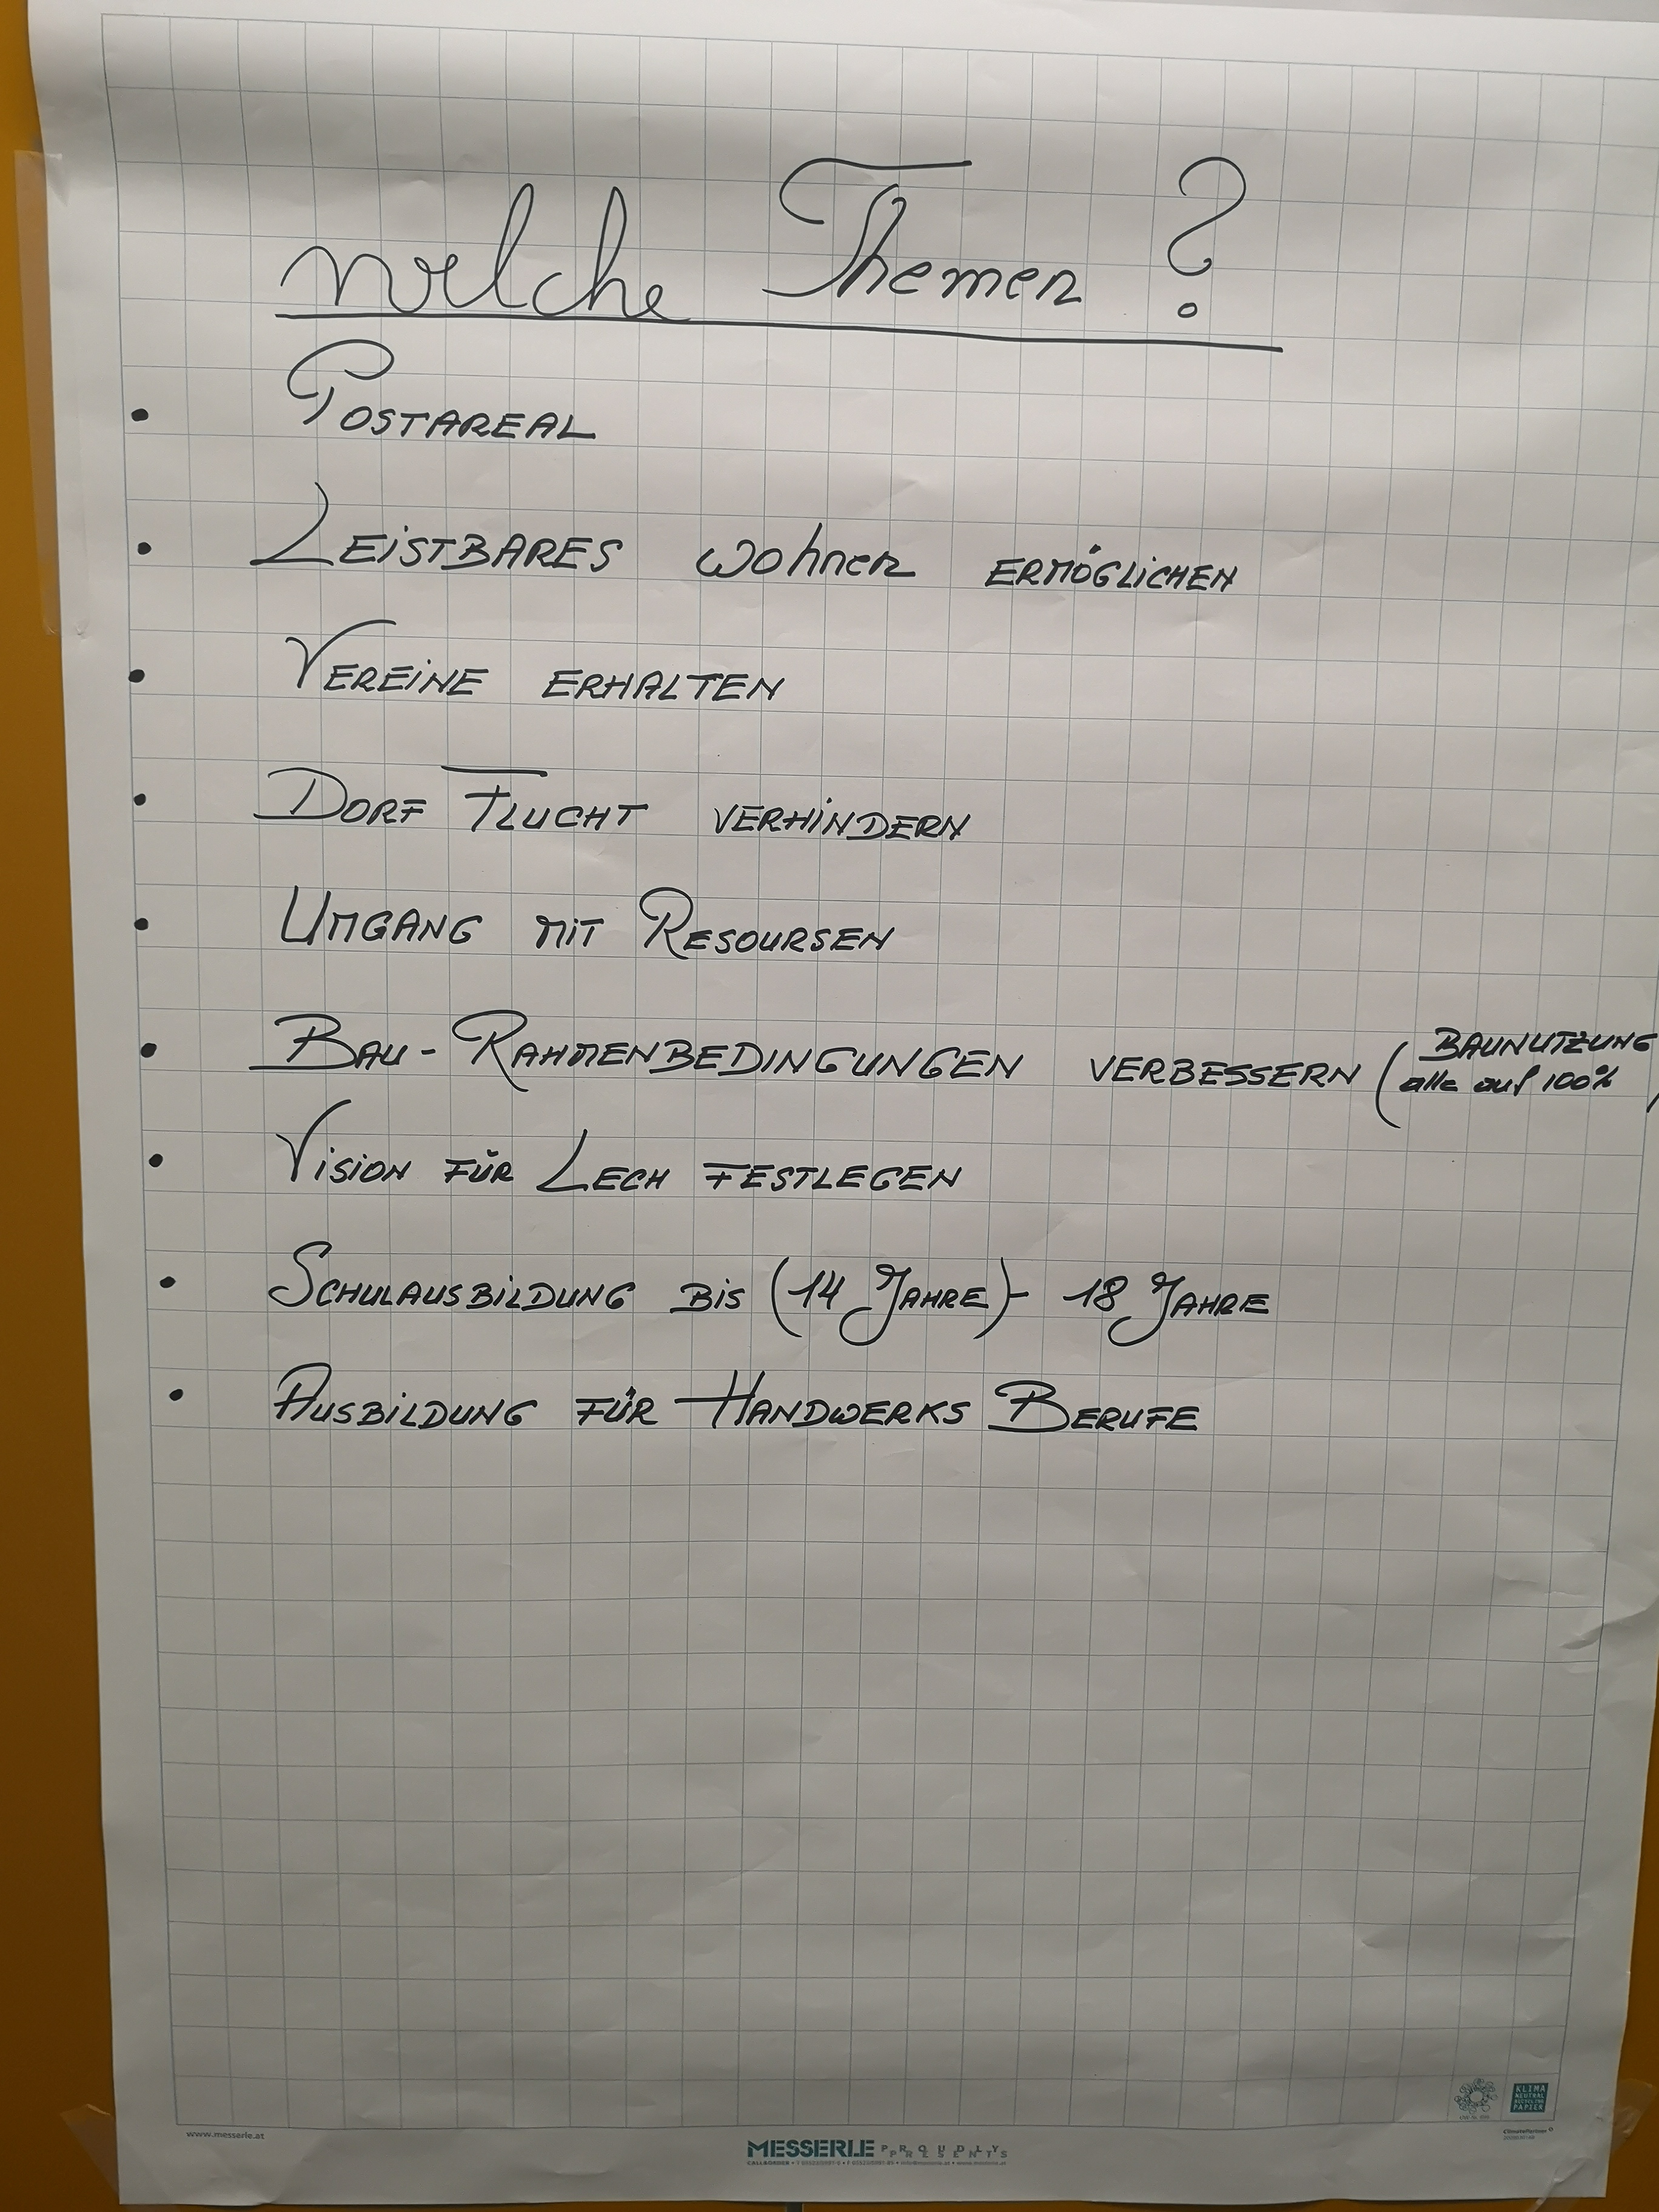 welche Themen ?
• Postareal
• Leistbares wohnen ermöglichen
• Vereine erhalten
• Dorf Flucht verhindern
• Umgang mit Resoursen
• Bau-Rahmenbedingungen verbessern (Baunutzung
alle auf 100% )
• Vision für Lech festlegen
• Schulausbildung bis (14 Jahre)- 18 Jahre
• Ausbildung für Handwerks Berufe
KLIMA
NEUTRAL
RECYCLING
PAPIER
www.messerle.at
ClimatePartner
MESSERLE PROUDLY
PRESENTS